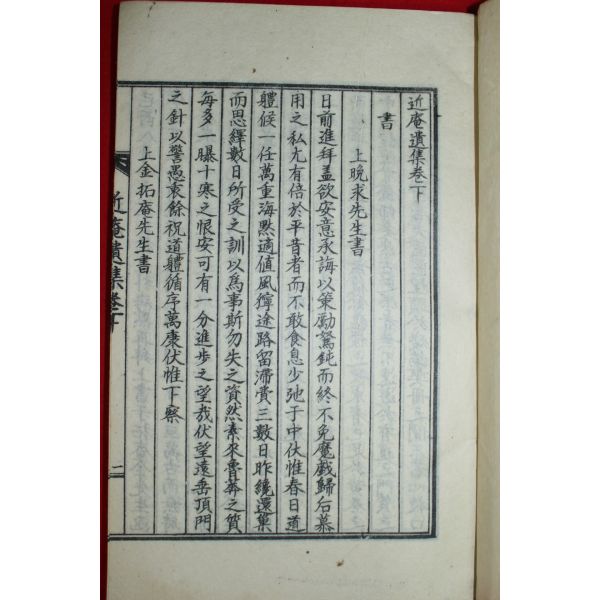 近庵遺集卷下
書
上晩求先生書
日前進拜盖欲安意承誨以策勵駑鈍而終不免魔戱歸后慕
用之私尤有倍於平昔者而不敢食息少弛于中伏惟春日道
軆候一任萬重海㸃適值風獰途路留滯費三數日昨纔還巢
而思繹數日所受之訓以爲事斯勿失之資然素來鹵莽之質
每多一曝十寒之恨安可有一分進步之望哉伏望遠垂頂門
之針以警愚衷餘祝道軆循序萬康伏惟下察
上金拓庵先生書
近庵遺集卷下
一